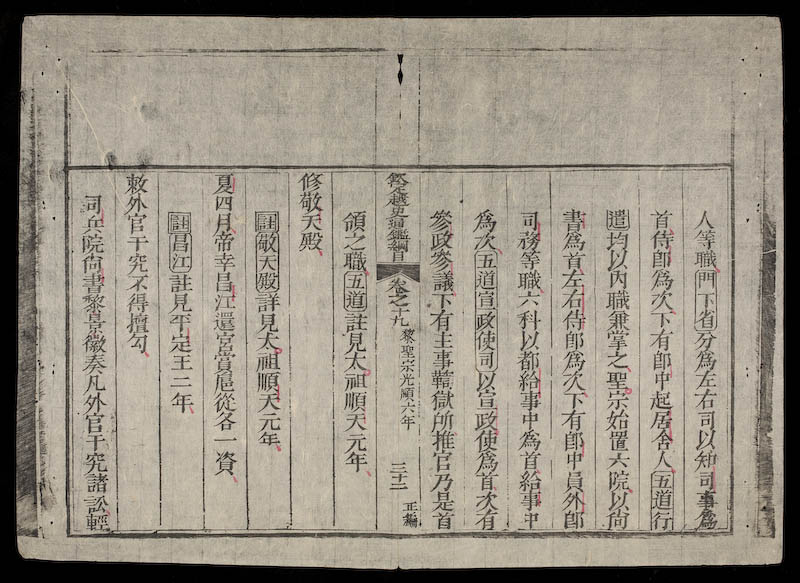 人等職門下省分爲左右司以知司事爲
首侍郎爲次下有郎中起居舍人五道行
遣均以內職兼掌之聖宗始置六院以尚
書爲首左右侍郎爲次下有郎中員外郎
司務等職六科以都給事中爲首給事中
爲次五道宣政使司以宣政使爲首次有
參政參議下有主事鞫獄所推官乃是首
欽定越史通鑑綱目 卷之十九 黎聖宗光順六年 三十二 正編
領之職五道註見太祖順天元年
修敬天殿
註敬天殿詳見太祖順天元年
夏四月帝幸昌江還宮賞扈從各一資
註昌江註見平定王二年
敕外官干究不得擅勾
司丘院尚書黎景徽奏凡外官干究諸訟輕